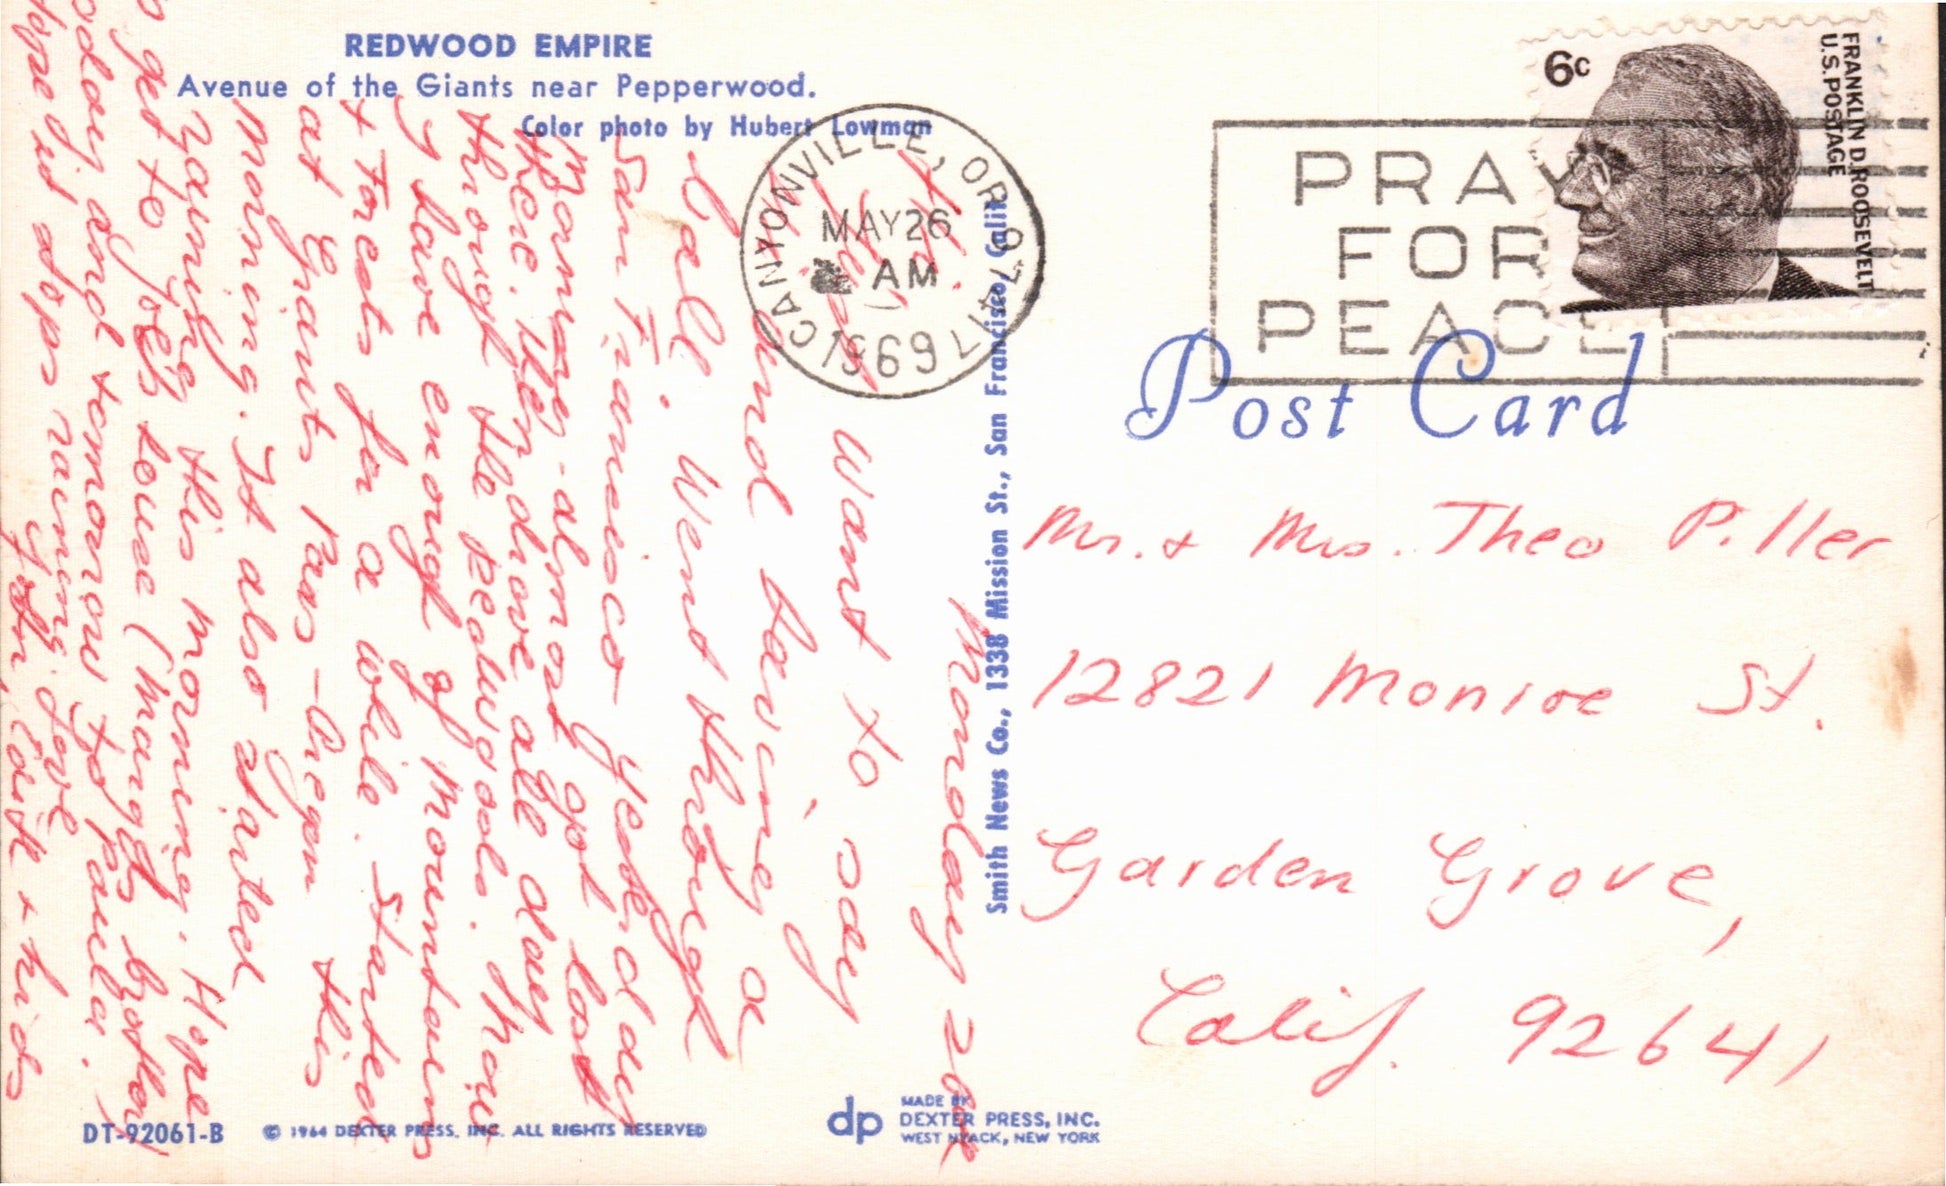 REDWOOD EMPIRE
Avenue of the Giants near Pepperwood.
Color photo by Hubert Lowman
Monday 26th
Hi.
Want to say
and having a
ball. Went through
San Francisco yesterday
Morning - almost got lost
there. then drove all day
through the redwoods. Now
y have enough of mountains
+ Forests for a while. Started
at Grants Pass - Oregon this
morning. It also started
raining this morning. Hope
to get to Joe's house (Marge's brother)
today and tomorrow to Paula.
Hope it stops raining. Love
John, Edith + kids
CANYONVILLE, OR 97417
MAY 26
AM
1969
PRAY
FOR
PEACE
6c
FRANKLIN D. ROOSEVELT
U.S. POSTAGE
Post Card
Smith News Co., 1338 Mission St., San Francisco, Calif.
Mr. + Mrs. Theo Piller
12821 Monroe St.
Garden Grove,
Calif. 92641
DT-92061-B
© 1964 DEXTER PRESS, INC. ALL RIGHTS RESERVED
dp
MADE BY
DEXTER PRESS, INC.
WEST NYACK, NEW YORK